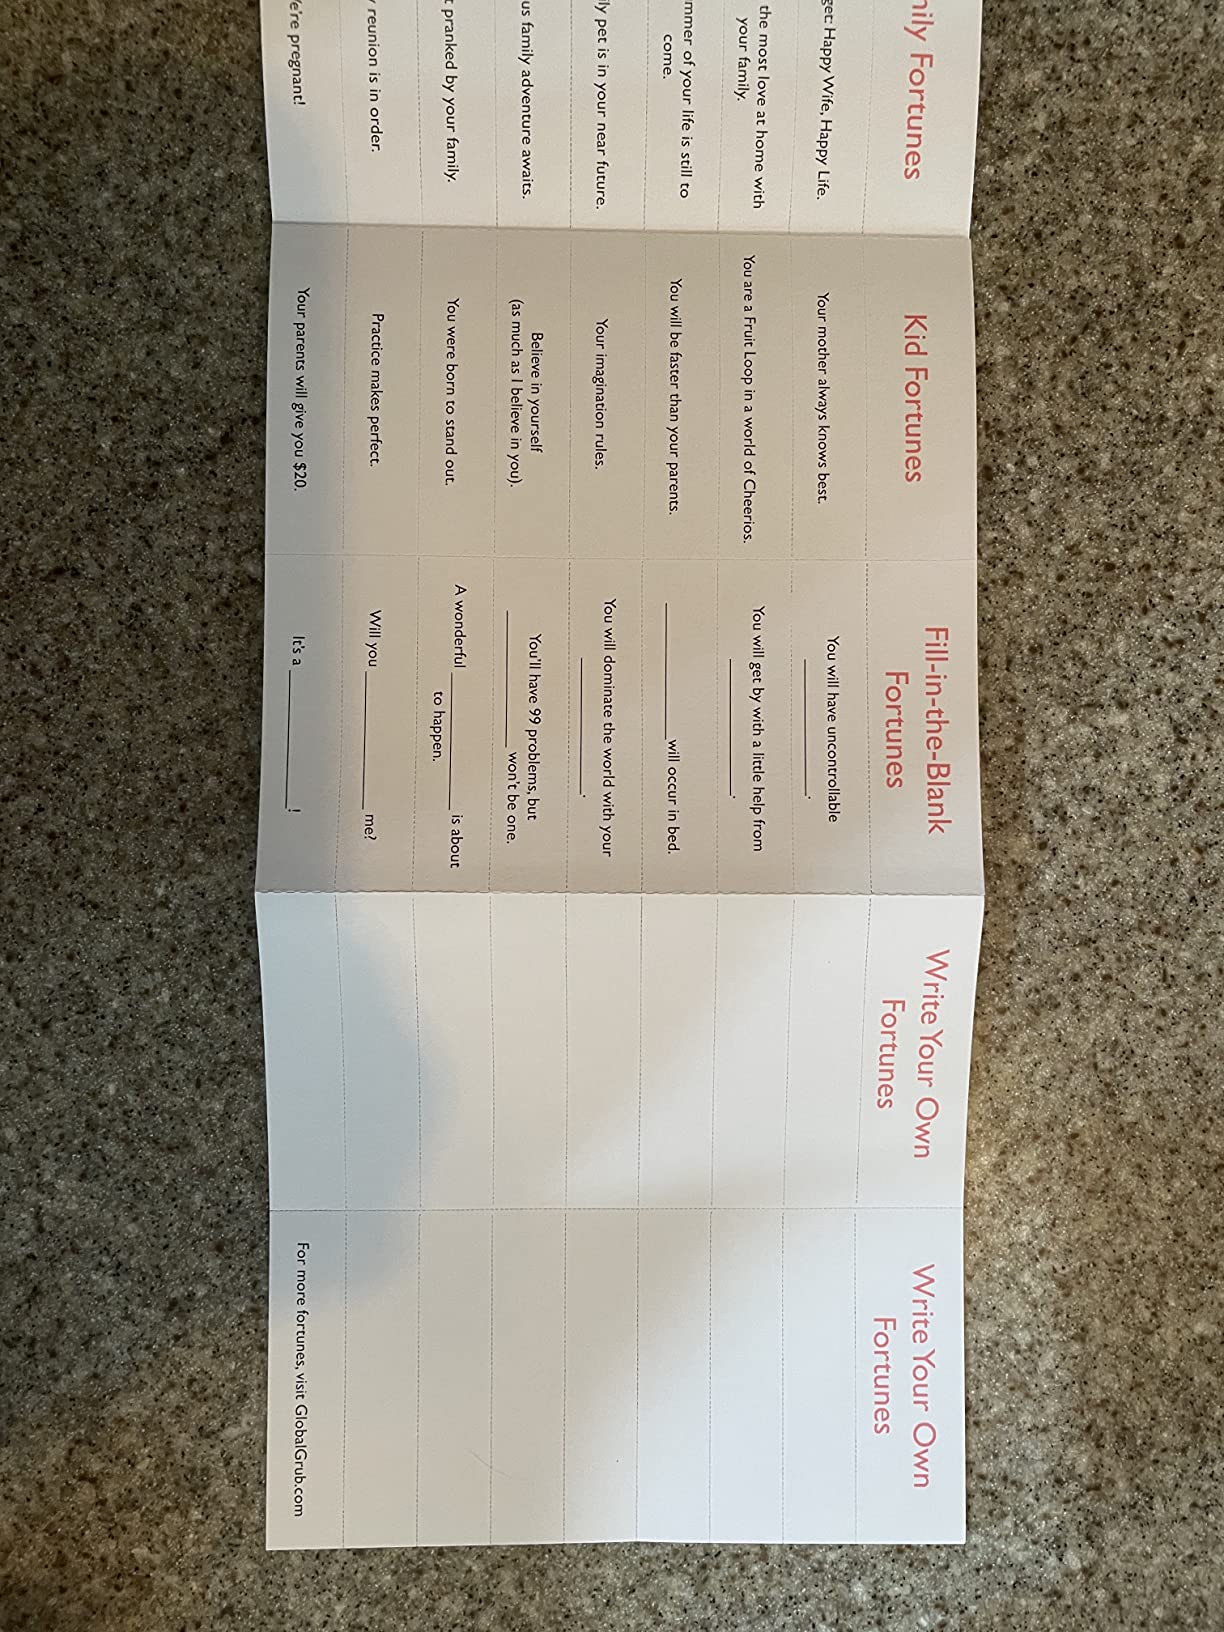 Fortunes
Happy Wife, Happy Life.
the most love at home with
your family.
of your life is still to
come.
pet is in your near future.
family adventure awaits.
pranked by your family.
reunion is in order.
pregnant!
Kid Fortunes
Your mother always knows best.
You are a Fruit Loop in a world of Cheerios.
You will be faster than your parents.
Your imagination rules.
Believe in yourself
(as much as I believe in you).
You were born to stand out.
Practice makes perfect.
Your parents will give you $20.
Fill-in-the-Blank
Fortunes
You will have uncontrollable
____________.
You will get by with a little help from
____________.
____________ will occur in bed.
You will dominate the world with your
____________.
You'll have 99 problems, but
____________ won't be one.
A wonderful ____________ is about
to happen.
Will you ____________ me?
It's a ____________!
Write Your Own
Fortunes
Write Your Own
Fortunes
For more fortunes, visit GlobalGrub.com